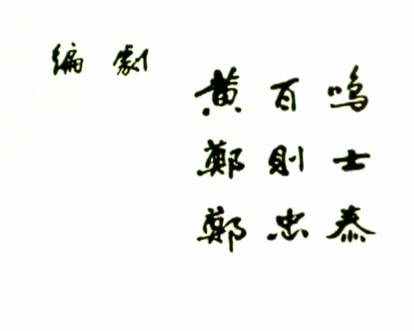 編劇
黃百鳴
鄭則士
鄭忠泰